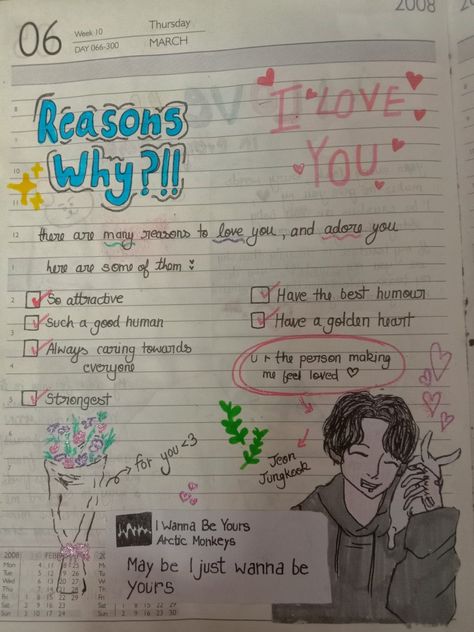 2008
06
Week 10
DAY 066-300
Thursday
MARCH
Reasons
Why?!!
I LOVE
YOU
there are many reasons to love you, and adore you
here are some of them
So attractive
Have the best humour
Such a good human
Have a golden heart
Always caring towards
everyone
u r the person making
me feel loved
Strongest
for you <3
Jeon
Jungkook
I Wanna Be Yours
Arctic Monkeys
May be I just wanna be
yours
2008
Mon
Tue
Wed
Thu
Fri
Sat
Sun